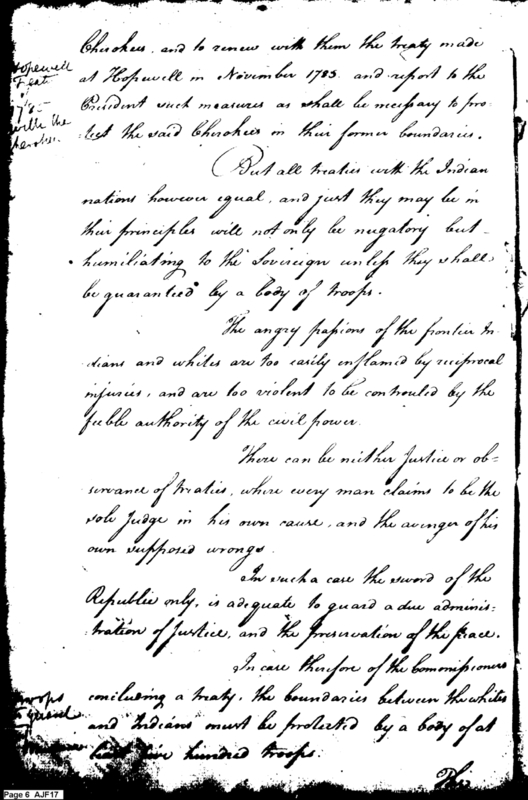 Cherokees, and to renew with them the treaty made
at Hopewell in November 1785 and report to the
President such measures as shall be necessary to pro-
tect the said Cherokees in their former boundaries.
Hopewell
Treat
1785
with the
Cherokee
But all treaties with the Indian
nations however equal, and just they may be in
their principles will not only be nugatory but
humiliating to the Sovereign unless they shall
be guarantied by a body of troops.
The angry passions of the frontier In-
dians and whites are too easily inflamed by reciprocal
injuries, and are too violent to be controuled by the
feeble authority of the civil power.
There can be neither Justice or ob-
servance of treaties, where every man claims to be the
sole Judge in his own cause, and the avenger of his
own supposed wrongs.
In such a case the sword of the
Republic only, is adequate to guard a due adminis-
tration of Justice, and the preservation of the peace.
In case therefore of the Commissioners
concluding a treaty, the boundaries between the whites
and Indians must be protected by a body of at
least five hundred troops.
Troops
to guard
The
Page 6 AJF17